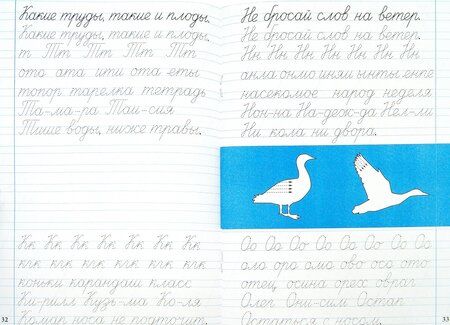 Какие труды, такие и плоды.
Какие труды, такие и плоды.
т Тт Тт Тт Тт
ото ата ити ота еты
топор тарелка тетрадь
Та-ма-ра Таи-сия
Тише воды, ниже травы.
Кк Кк Кк Кк Кк Кк Кк
кгк кгк кгк кгк кгк кгк
коньки карандаш класс
Ки-рилл Кузь-ма Ко-ля
Комар носа не подточит.
32
Не бросай слов на ветер.
Не бросай слов на ветер.
Нн Нн Нн Нн Нн Нн Нн
анла онмо иняи ынты енпе
насекомое народ неделя
Нон-на На-деж-да Нел-ли
Ни кола ни двора.
Оо Оо Оо Оо Оо Оо Оо Оо
оло оро омо ово осо ото
отец, осина орех овраг
Олег Они-сим Остап
Остаться с носом.
33